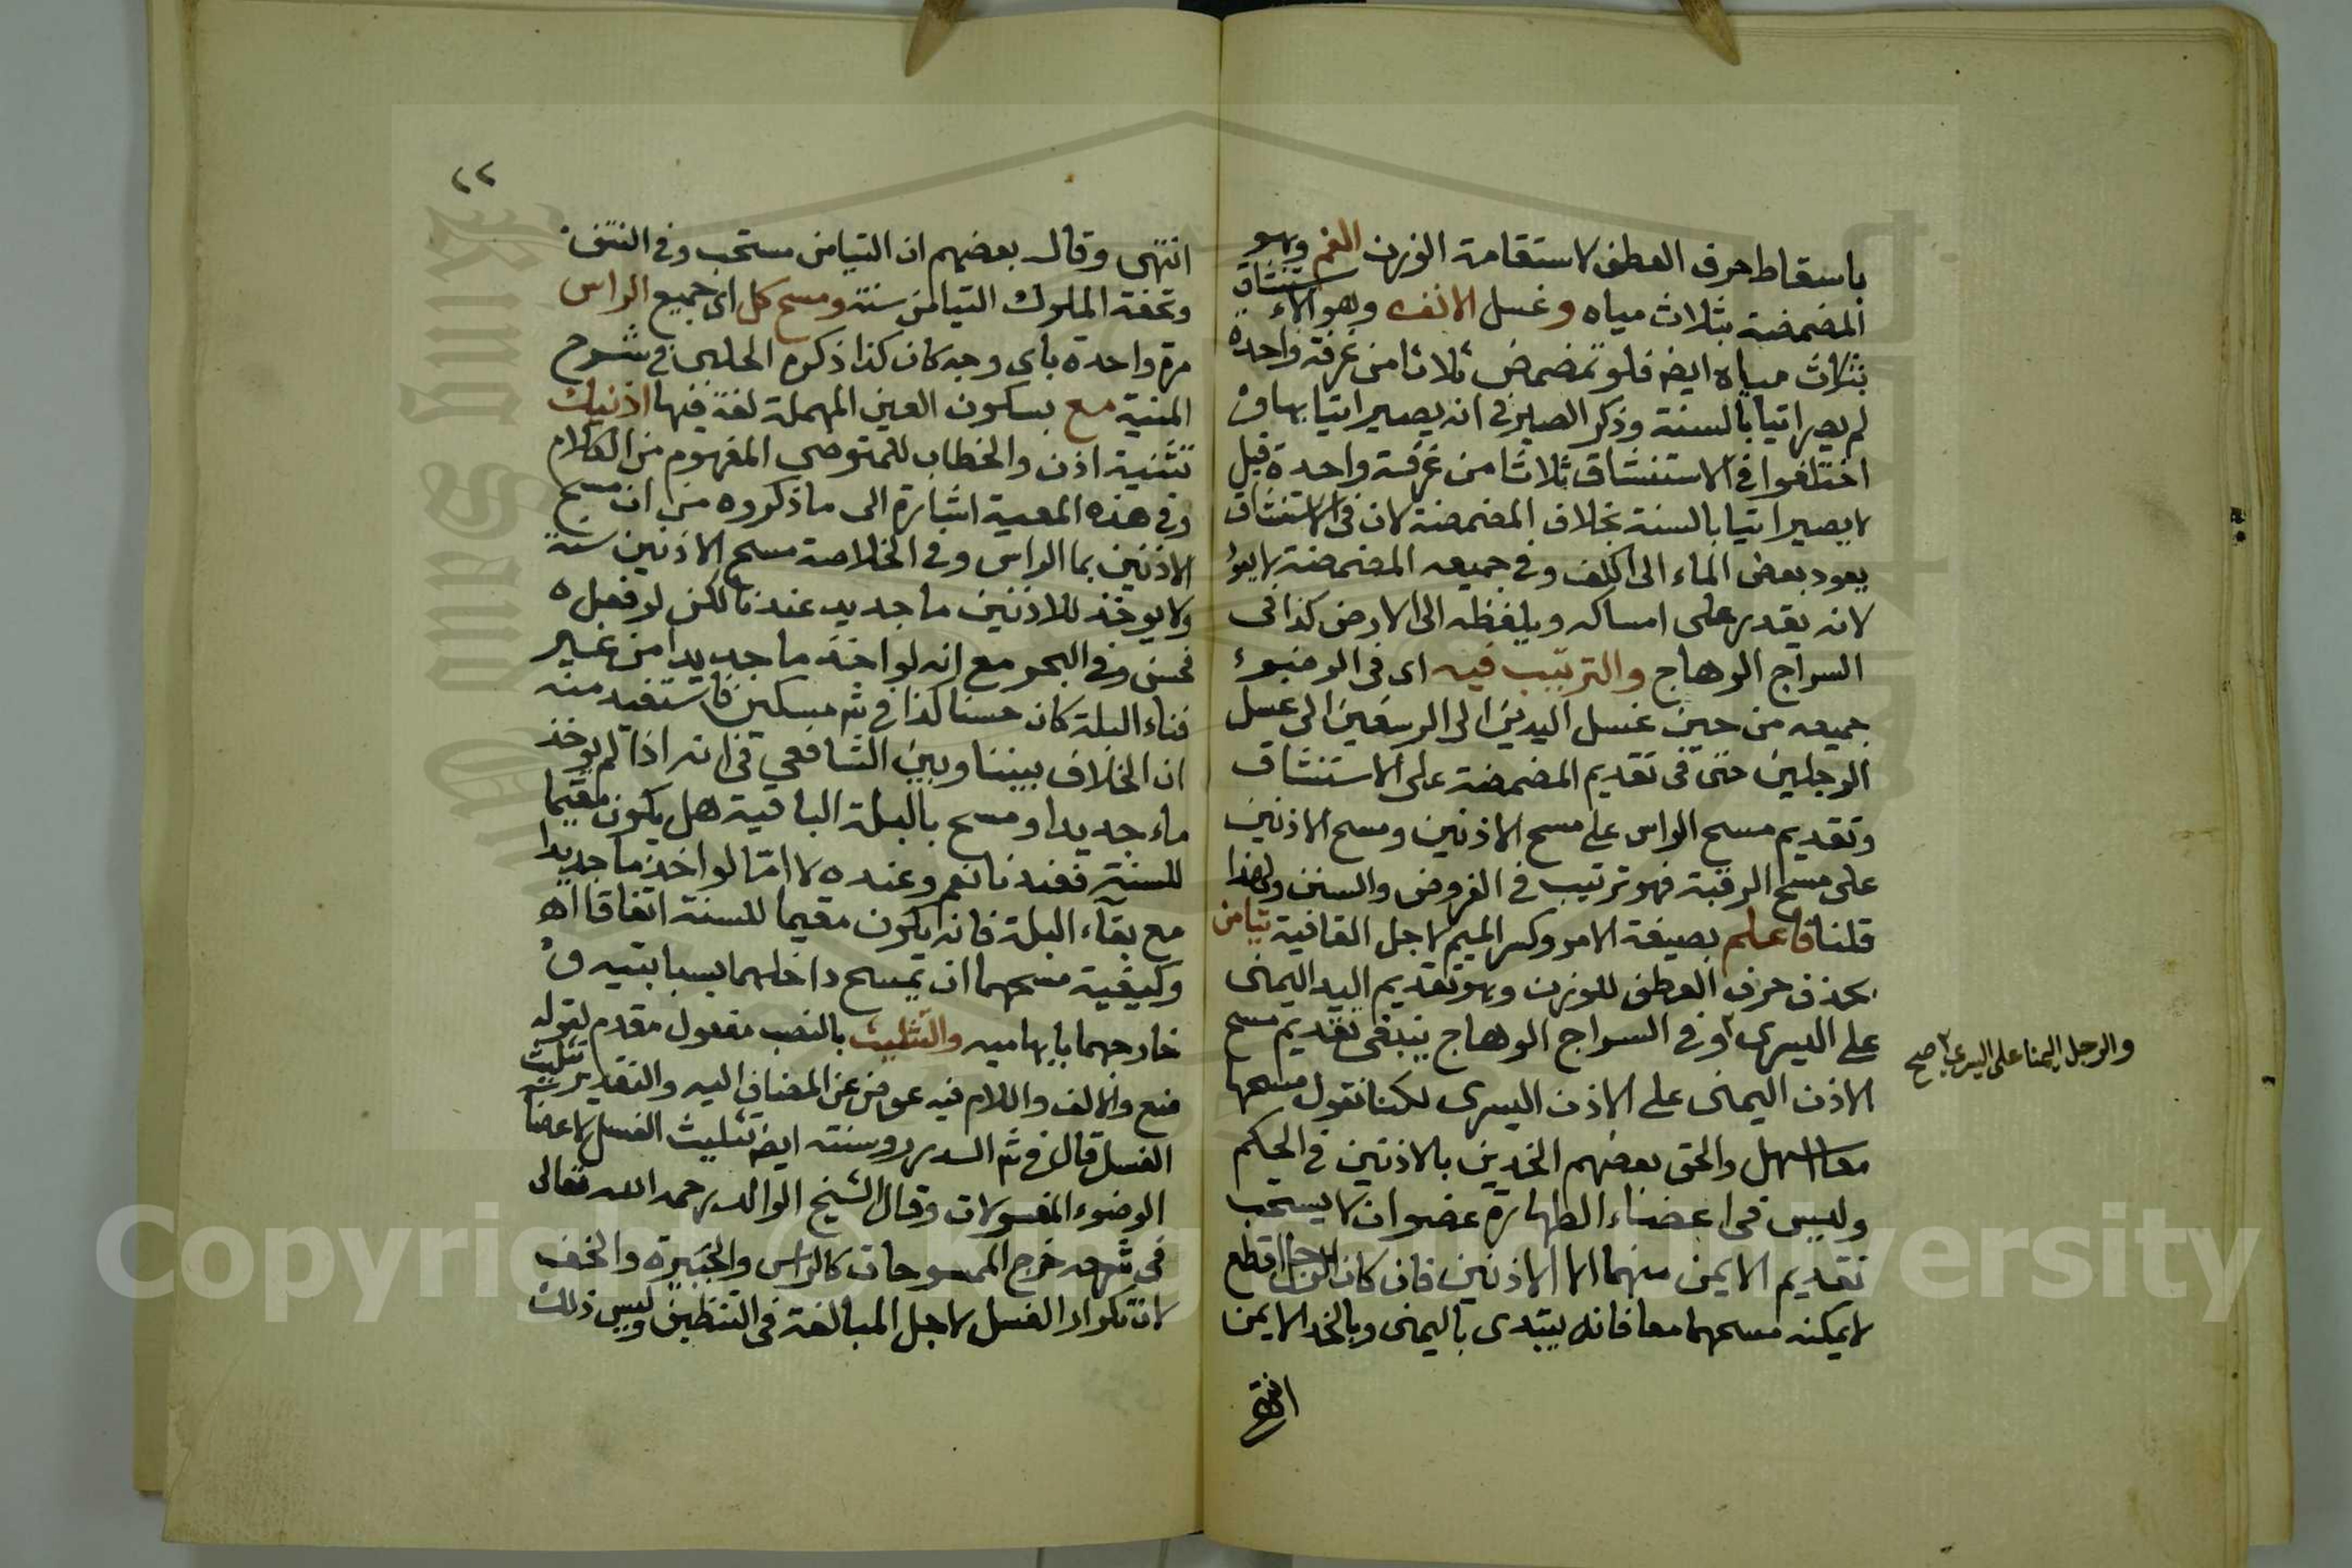 باسقاط حرف العطف لاستقامة الوزن الفم وهو
المضمضة بثلاث مياه وغسل الانف وهو الاستنشاق
بثلاث مياه ايضا فلو تمضمض ثلاثا من غرفة واحدة
لم يصر اتيا بالسنة وذكر الصيرفي انه يصير اتيا بها و
اختلفوا في الاستنشاق ثلاثا من غرفة واحدة قيل
لا يصير اتيا بالسنة بخلاف المضمضة لان في الاستنشاق
يعود بعض الماء الى الكف وفي جميعه المضمضة لا يعود
لانه يقدر على امساكه ويلفظه الى الارض كذا في
السراج الوهاج والترتيب فيه اى في الوضوء
جميعه من حين غسل اليدين الى الرسغين الى غسل
الرجلين حتى في تقديم المضمضة على الاستنشاق
وتقديم مسح الراس على مسح الاذنين ومسح الاذنين
على مسح الرقبة فهو ترتيب في الفروض والسنن ولهذا
قلنا فاعلم بصيغة الامر وكسر الميم لاجل القافية تيامن
بحذف حرف العطف للوزن وهو تقديم اليد اليمنى
على اليسرى وفي السراج الوهاج ينبغي تقديم مسح
والرجل اليمنا على اليسرى صح
الاذن اليمنى على الاذن اليسرى لكنا نقول مسحها
معا اسهل والحق بعضهم الخدين بالاذنين في الحكم
وليس في اعضاء الطهارة عضوان لا يستحب
تقديم الايمن منهما الا الاذنين فان كان الرجل اقطع
لا يمكنه مسحهما معا فانه يبتدى باليمنى وبالخد الايمن
انتهى
٢٢
انتهى وقال بعضهم ان التيامن مستحب وفي النتف
وتحفة الملوك التيامن سنة ومسح كل اى جميع الراس
مرة واحدة باى وجه كان كذا ذكره الحلبي في شرح
المنية مع بسكون العين المهملة لغة فيها اذنيك
تثنية اذن والخطاب للمتوضي المفهوم من الكلام
وفي هذه المعية اشارة الى ما ذكروه من ان مسح
الاذنين بما الراس وفي الخلاصة مسح الاذنين سنة
ولا يوخذ للاذنين ما جديد عندنا لكن لو فعله
فحسن وفي البحر مع انه لو اخذ ما جديدا من غير
فناء البلة كان حسنا كذا في شر مسكين فاستفيد منه
ان الخلاف بيننا وبين الشافعي في انه اذا لم يوخذ
ماء جديدا ومسح بالبلة الباقية هل يكون مقيما
للسنة فعندنا نعم وعنده لا امّا لو اخذ ما جديدا
مع بقآء البلة فانه يكون مقيما للسنة اتفاقا اه
وكيفية مسحهما ان يمسح داخلهما بسبابتيه و
خارجهما بابهاميه والتثليث بالنصب مفعول مقدم لقوله
ضع والالف واللام فيه عوض عن المضاف اليه والتقدير تثليث
الغسل قال في شر الدرر وسنته ايضا تثليث الغسل لاعضا
الوضوء المغسولات وقال الشيخ الوالد رحمه الله تعالى
في شرحه خرج الممسوحات كالراس والجبيرة والخف
لان تكرار الغسل لاجل المبالغة في التنظيف وليس ذلك